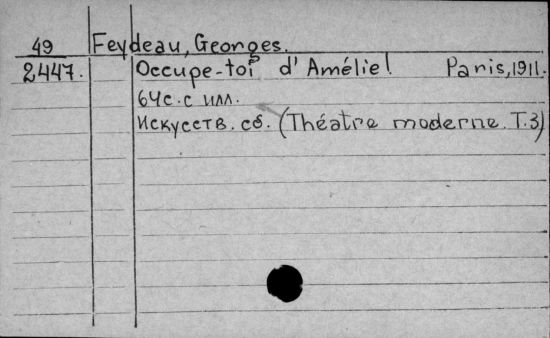 49 Feydeau, Georges.
2447. Occupe-toi d'Amélie! Paris, 1911.
64с. с илл.
Искусств. сб. (Théatre moderne. T.3)